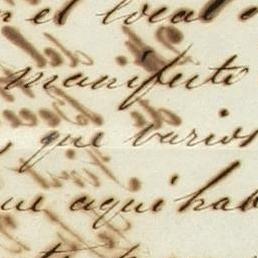 en el local o
manifiesto
que varios
que aqui hab